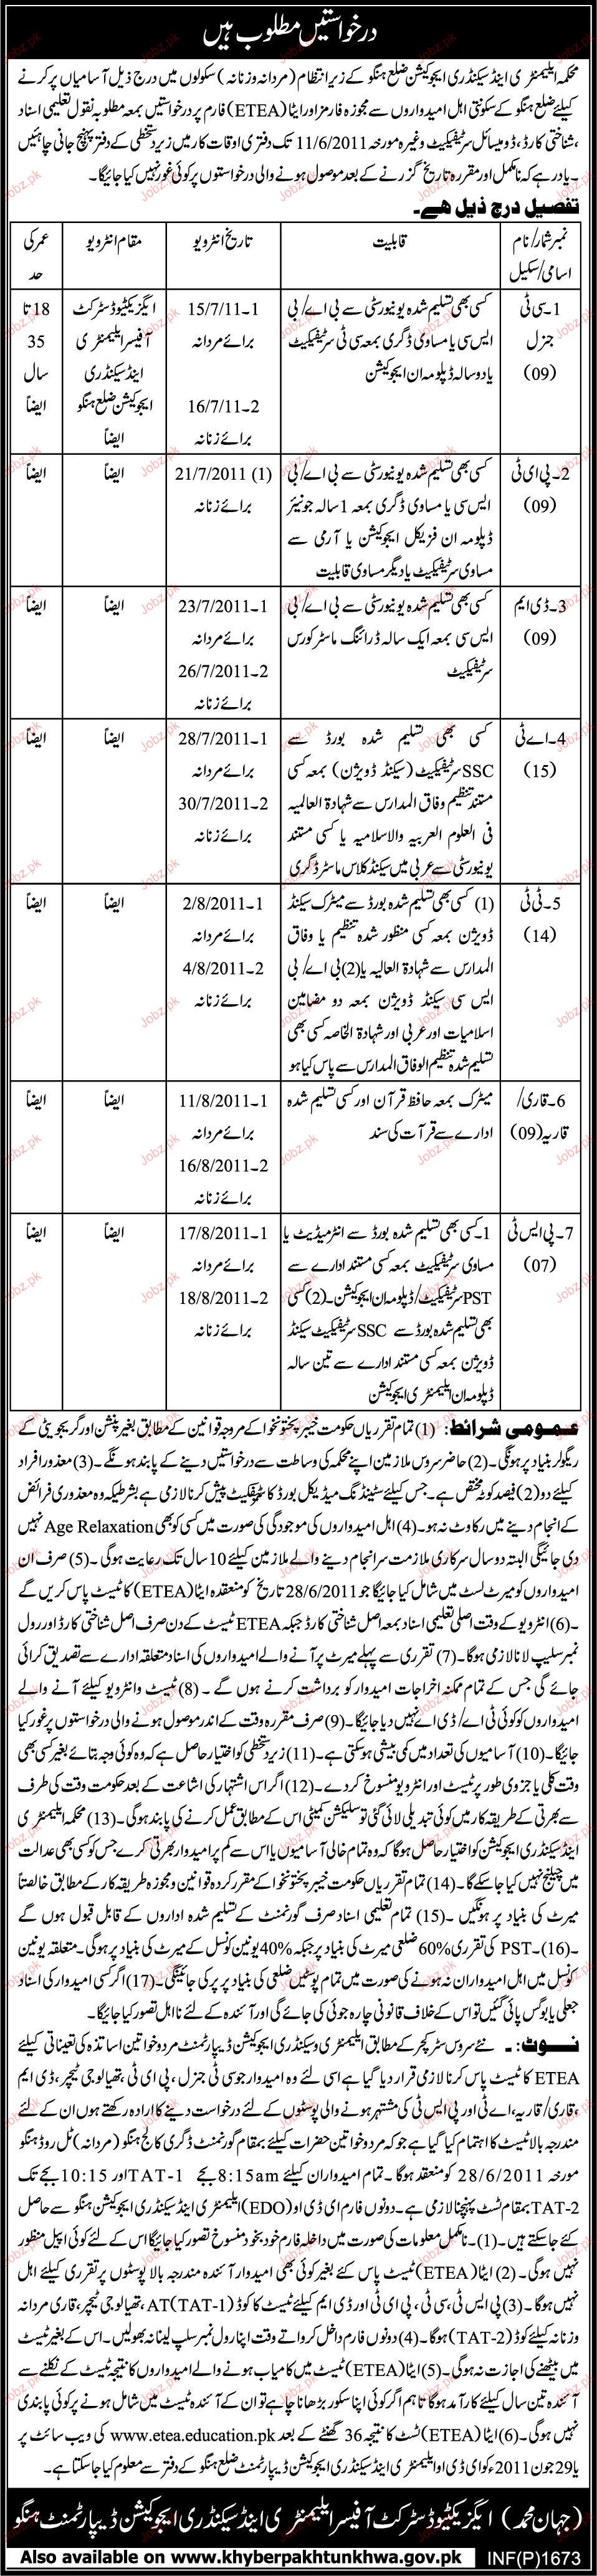 درخواستیں مطلوب ہیں
محکمہ ایلیمنٹری اینڈ سیکنڈری ایجوکیشن ضلع ہنگو کے زیر انتظام (مردانہ وزنانہ) سکولوں میں درج ذیل آسامیاں پر کرنے
کیلئے ضلع ہنگو کے سکونتی اہل امیدواروں سے مجوزہ فارمز اور ایٹا (ETEA) فارم پر درخواستیں بمعہ مطلوبہ نقول تعلیمی اسناد
،شناختی کارڈ، ڈومیسائل سرٹیفکیٹ وغیرہ مورخہ 11/6/2011 تک دفتری اوقات کار میں زیر دستخطی کے دفتر پہنچ جانی چاہئیں
۔یاد رہے کہ نامکمل اور مقررہ تاریخ گزرنے کے بعد موصول ہونے والی درخواستوں پر کوئی غور نہیں کیا جائیگا۔
تفصیل درج ذیل ھے۔
نمبر شمار/ نام اسامی/سکیل
قابلیت
تاریخ انٹرویو
مقام انٹرویو
عمر کی حد
1۔سی ٹی جنرل (09)
کسی بھی تسلیم شدہ یونیورسٹی سے بی اے/ بی
ایس سی یا مساوی ڈگری بمعہ سی ٹی سرٹیفکیٹ
یا دو سالہ ڈپلومہ ان ایجوکیشن
1۔15/7/11 برائے مردانہ
2۔16/7/11 برائے زنانہ
ایگزیکٹیو ڈسٹرکٹ آفیسر ایلیمنٹری اینڈ سیکنڈری ایجوکیشن ضلع ہنگو
ایضاً
18 تا 35 سال
ایضاً
2۔پی ای ٹی (09)
کسی بھی تسلیم شدہ یونیورسٹی سے بی اے/ بی
ایس سی یا مساوی ڈگری بمعہ 1 سالہ جونیئر
ڈپلومہ ان فزیکل ایجوکیشن یا آرمی سے
مساوی سرٹیفکیٹ یا دیگر مساوی قابلیت
(1) 21/7/2011 برائے زنانہ
ایضاً
ایضاً
3۔ڈی ایم (09)
کسی بھی تسلیم شدہ یونیورسٹی سے بی اے/ بی
ایس سی بمعہ ایک سالہ ڈرائنگ ماسٹر کورس
سرٹیفکیٹ
1۔23/7/2011 برائے مردانہ
2۔26/7/2011 برائے زنانہ
ایضاً
ایضاً
4۔اے ٹی (15)
کسی بھی تسلیم شدہ بورڈ سے
SSC سرٹیفکیٹ (سیکنڈ ڈویژن) بمعہ کسی
مستند تنظیم وفاق المدارس سے شہادۃ العالمیہ
فی العلوم العربیہ والاسلامیہ یا کسی مستند
یونیورسٹی سے عربی میں سیکنڈ کلاس ماسٹر ڈگری
1۔28/7/2011 برائے مردانہ
2۔30/7/2011 برائے زنانہ
ایضاً
ایضاً
5۔ٹی ٹی (14)
(1) کسی بھی تسلیم شدہ بورڈ سے میٹرک سیکنڈ
ڈویژن بمعہ کسی منظور شدہ تنظیم یا وفاق
المدارس سے شہادۃ العالیہ یا (2) بی اے/ بی
ایس سی سیکنڈ ڈویژن بمعہ دو مضامین
اسلامیات اور عربی اور شہادۃ الخاصہ کسی بھی
تسلیم شدہ تنظیم الوفاق المدارس سے پاس کیا ہو
1۔2/8/2011 برائے مردانہ
2۔4/8/2011 برائے زنانہ
ایضاً
ایضاً
6۔قاری/ قاریہ (09)
میٹرک بمعہ حافظ قرآن اور کسی تسلیم شدہ
ادارے سے قرآت کی سند
1۔11/8/2011 برائے مردانہ
2۔16/8/2011 برائے زنانہ
ایضاً
ایضاً
7۔پی ایس ٹی (07)
1۔کسی بھی تسلیم شدہ بورڈ سے انٹرمیڈیٹ یا
مساوی سرٹیفکیٹ بمعہ کسی مستند ادارے سے
PST سرٹیفکیٹ/ ڈپلومہ ان ایجوکیشن۔(2) کسی
بھی تسلیم شدہ بورڈ سے SSC سرٹیفکیٹ سیکنڈ
ڈویژن بمعہ کسی مستند ادارے سے تین سالہ
ڈپلومہ ان ایلیمنٹری ایجوکیشن
1۔17/8/2011 برائے مردانہ
2۔18/8/2011 برائے زنانہ
ایضاً
ایضاً
عمومی شرائط: (1) تمام تقرریاں حکومت خیبر پختونخوا کے مروجہ قوانین کے مطابق بغیر پنشن اور گریجویٹی کے
ریگولر بنیاد پر ہونگی۔ (2) حاضر سروس ملازمین اپنے محکمہ کی وساطت سے درخواستیں دینے کے پابند ہونگے۔ (3) معذور افراد
کیلئے دو (2) فیصد کوٹہ مختص ہے۔ جس کیلئے سٹینڈنگ میڈیکل بورڈ کا سرٹیفکیٹ پیش کرنا لازمی ہے بشرطیکہ وہ معذوری فرائض
کے انجام دینے میں رکاوٹ نہ ہو۔ (4) اہل امیدواروں کی موجودگی کی صورت میں کسی کو بھی Age Relaxation نہیں
دی جائیگی البتہ دو سال سرکاری ملازمت سر انجام دینے والے ملازمین کیلئے 10 سال تک رعایت ہوگی۔ (5) صرف ان
امیدواروں کو میرٹ لسٹ میں شامل کیا جائیگا جو 28/6/2011 تاریخ کو منعقدہ ایٹا (ETEA) کا ٹیسٹ پاس کریں گے
۔(6) انٹرویو کے وقت اصلی تعلیمی اسناد بمعہ اصل شناختی کارڈ جبکہ ETEA ٹیسٹ کے دن صرف اصل شناختی کارڈ اور رول
نمبر سلیپ لانا لازمی ہوگا۔ (7) تقرری سے پہلے میرٹ پر آنے والے امیدواروں کی اسناد متعلقہ ادارے سے تصدیق کرائی
جائے گی جس کے تمام ممکنہ اخراجات امیدوار کو برداشت کرنے ہوں گے۔ (8) ٹیسٹ و انٹرویو کیلئے آنے والے
امیدواروں کو کوئی ٹی اے/ ڈی اے نہیں دیا جائیگا۔ (9) صرف مقررہ وقت کے اندر موصول ہونے والی درخواستوں پر غور کیا
جائیگا۔ (10) آسامیوں کی تعداد میں کمی بیشی ہو سکتی ہے۔ (11) زیر دستخطی کو اختیار حاصل ہے کہ وہ کوئی وجہ بتائے بغیر کسی بھی
وقت کلی یا جزوی طور پر ٹیسٹ اور انٹرویو منسوخ کر دے۔ (12) اگر اس اشتہار کی اشاعت کے بعد حکومت وقت کی طرف
سے بھرتی کے طریقہ کار میں کوئی تبدیلی لائی گئی تو سلیکشن کمیٹی اس کے مطابق عمل کرنے کی پابند ہوگی۔ (13) محکمہ ایلیمنٹری
اینڈ سیکنڈری ایجوکیشن کو اختیار حاصل ہوگا کہ وہ تمام خالی آسامیوں یا اس سے کم پر امیدوار بھرتی کرے جس کو کسی بھی عدالت
میں چیلنج نہیں کیا جا سکے گا۔ (14) تمام تقرریاں حکومت خیبر پختونخوا کے مقرر کردہ قوانین و مجوزہ طریقہ کار کے مطابق خالصتاً
میرٹ کی بنیاد پر ہونگیں۔ (15) تمام تعلیمی اسناد صرف گورنمنٹ کے تسلیم شدہ اداروں کے قابل قبول ہوں گے
۔(16)۔PST کی تقرری 60% ضلعی میرٹ کی بنیاد پر جبکہ 40% یونین کونسل کے میرٹ کی بنیاد پر ہوگی۔ متعلقہ یونین
کونسل میں اہل امیدواران نہ ہونے کی صورت میں تمام پوسٹیں ضلعی کی بنیاد پر پر کی جائینگی۔ (17) اگر کسی امیدوار کی اسناد
جعلی یا بوگس پائی گئیں تو اس کے خلاف قانونی چارہ جوئی کی جائے گی اور آئندہ کے لئے نا اہل تصور کیا جائے گا۔
نوٹ:۔ نئے سروس سٹرکچر کے مطابق ایلیمنٹری و سیکنڈری ایجوکیشن ڈیپارٹمنٹ مرد و خواتین اساتذہ کی تعیناتی کیلئے
ETEA کا ٹیسٹ پاس کرنا لازمی قرار دیا گیا ہے اسی لئے وہ امیدوار جو سی ٹی جنرل، پی ای ٹی، تھیالوجی ٹیچر، ڈی ایم
،قاری/ قاریہ، اے ٹی اور پی ایس ٹی کی مشتہر ہونے والی پوسٹوں کے لئے درخواست دینے کا ارادہ رکھتے ہوں ان کے لئے
مندرجہ بالا ٹیسٹ کا اہتمام کیا گیا ہے جو کہ مرد و خواتین حضرات کیلئے بمقام گورنمنٹ ڈگری کالج ہنگو (مردانہ) ٹل روڈ ہنگو
مورخہ 28/6/2011 کو منعقد ہوگا۔ تمام امیدواران کیلئے 8:15am بجے TAT-1 اور 10:15 بجے تک
TAT-2 بمقام ٹسٹ پہنچنا لازمی ہے۔ دونوں فارم ای ڈی او (EDO) ایلیمنٹری اینڈ سیکنڈری ایجوکیشن ہنگو سے حاصل
کئے جا سکتے ہیں۔ (1)۔ نامکمل معلومات کی صورت میں داخلہ فارم خود بخود منسوخ تصور کیا جائیگا اس کے لئے کوئی اپیل منظور
نہیں ہوگی۔ (2) ایٹا (ETEA) ٹیسٹ پاس کئے بغیر کوئی بھی امیدوار آئندہ مندرجہ بالا پوسٹوں پر تقرری کیلئے اہل
نہیں ہوگا۔ (3) پی ایس ٹی، سی ٹی، پی ای ٹی اور ڈی ایم کیلئے ٹیسٹ کا کوڈ (TAT-1) AT، تھیالوجی ٹیچر، قاری مردانہ
وزنانہ کیلئے کوڈ (TAT-2) ہوگا۔ (4) دونوں فارم داخل کرواتے وقت اپنا رول نمبر سلپ لینا نہ بھولیں۔ اس کے بغیر ٹیسٹ
میں بیٹھنے کی اجازت نہ ہوگی۔ (5) ایٹا (ETEA) ٹیسٹ میں کامیاب ہونے والے امیدواروں کا نتیجہ ٹیسٹ کے نکلنے سے
آئندہ تین سال کیلئے کارآمد ہوگا تاہم اگر کوئی اپنا سکور بڑھانا چاہے تو ان کے آئندہ ٹیسٹ میں شامل ہونے پر کوئی پابندی
نہیں ہوگی۔ (6) ایٹا (ETEA) ٹسٹ کا نتیجہ 36 گھنٹے کے بعد www.etea.education.pk کی ویب سائٹ پر
یا 29 جون 2011 کو ای ڈی او ایلیمنٹری اینڈ سیکنڈری ایجوکیشن ڈیپارٹمنٹ ضلع ہنگو کے دفتر سے معلوم کیا جا سکتا ہے۔
(جہان محمد) ایگزیکٹیو ڈسٹرکٹ آفیسر ایلیمنٹری اینڈ سیکنڈری ایجوکیشن ڈیپارٹمنٹ ہنگو
Also available on www.khyberpakhtunkhwa.gov.pk
INF(P)1673